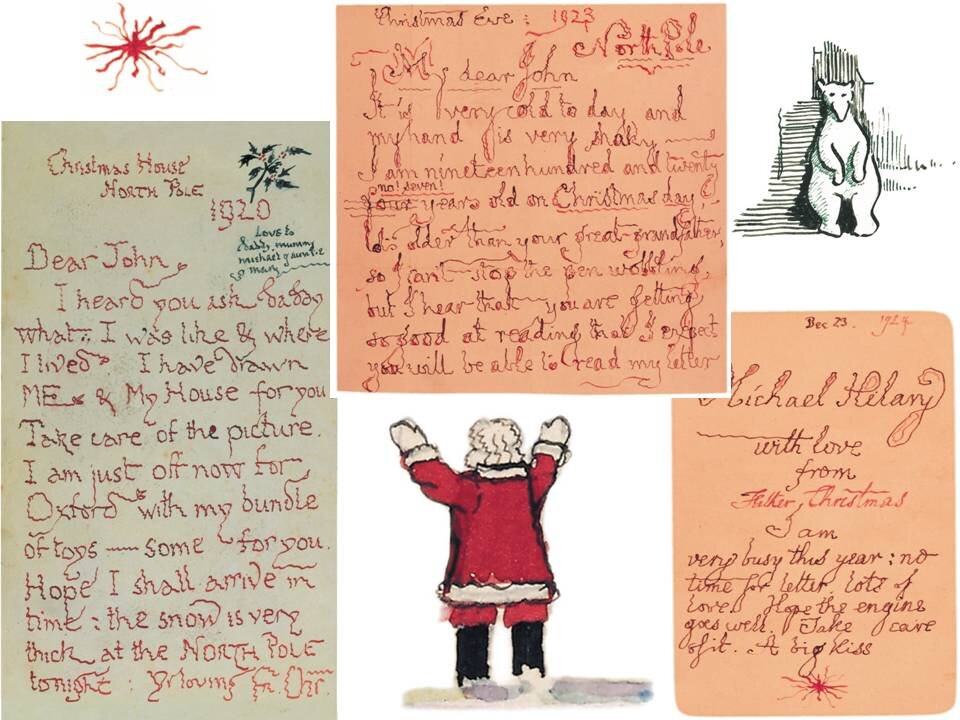 Christmas House
NORTH POLE
1920
Love to
daddy, mummy
michael & auntie
mary
Dear John
I heard you ask daddy
what I was like & where
I lived. I have drawn
ME & My House for you
Take care of the picture.
I am just off now for
Oxford with my bundle
of toys — some for you.
Hope I shall arrive in
time: the snow is very
thick at the NORTH POLE
tonight: Yr loving Fr. Chr.
Christmas Eve: 1923
North Pole
My dear John
It is very cold to day and
my hand is very shaky
I am nineteen hundred and twenty
no! seven!
four years old on Christmas day
lots older than your great-grandfather,
so I can't stop the pen wobbling,
but I hear that you are getting
so good at reading that I expect
you will be able to read my letter
Dec 23. 1924
Michael Hilary
with love
from
Father Christmas
I am
very busy this year: no
time for letter. lots of
love. Hope the engine
goes well. Take care
of it. A big kiss